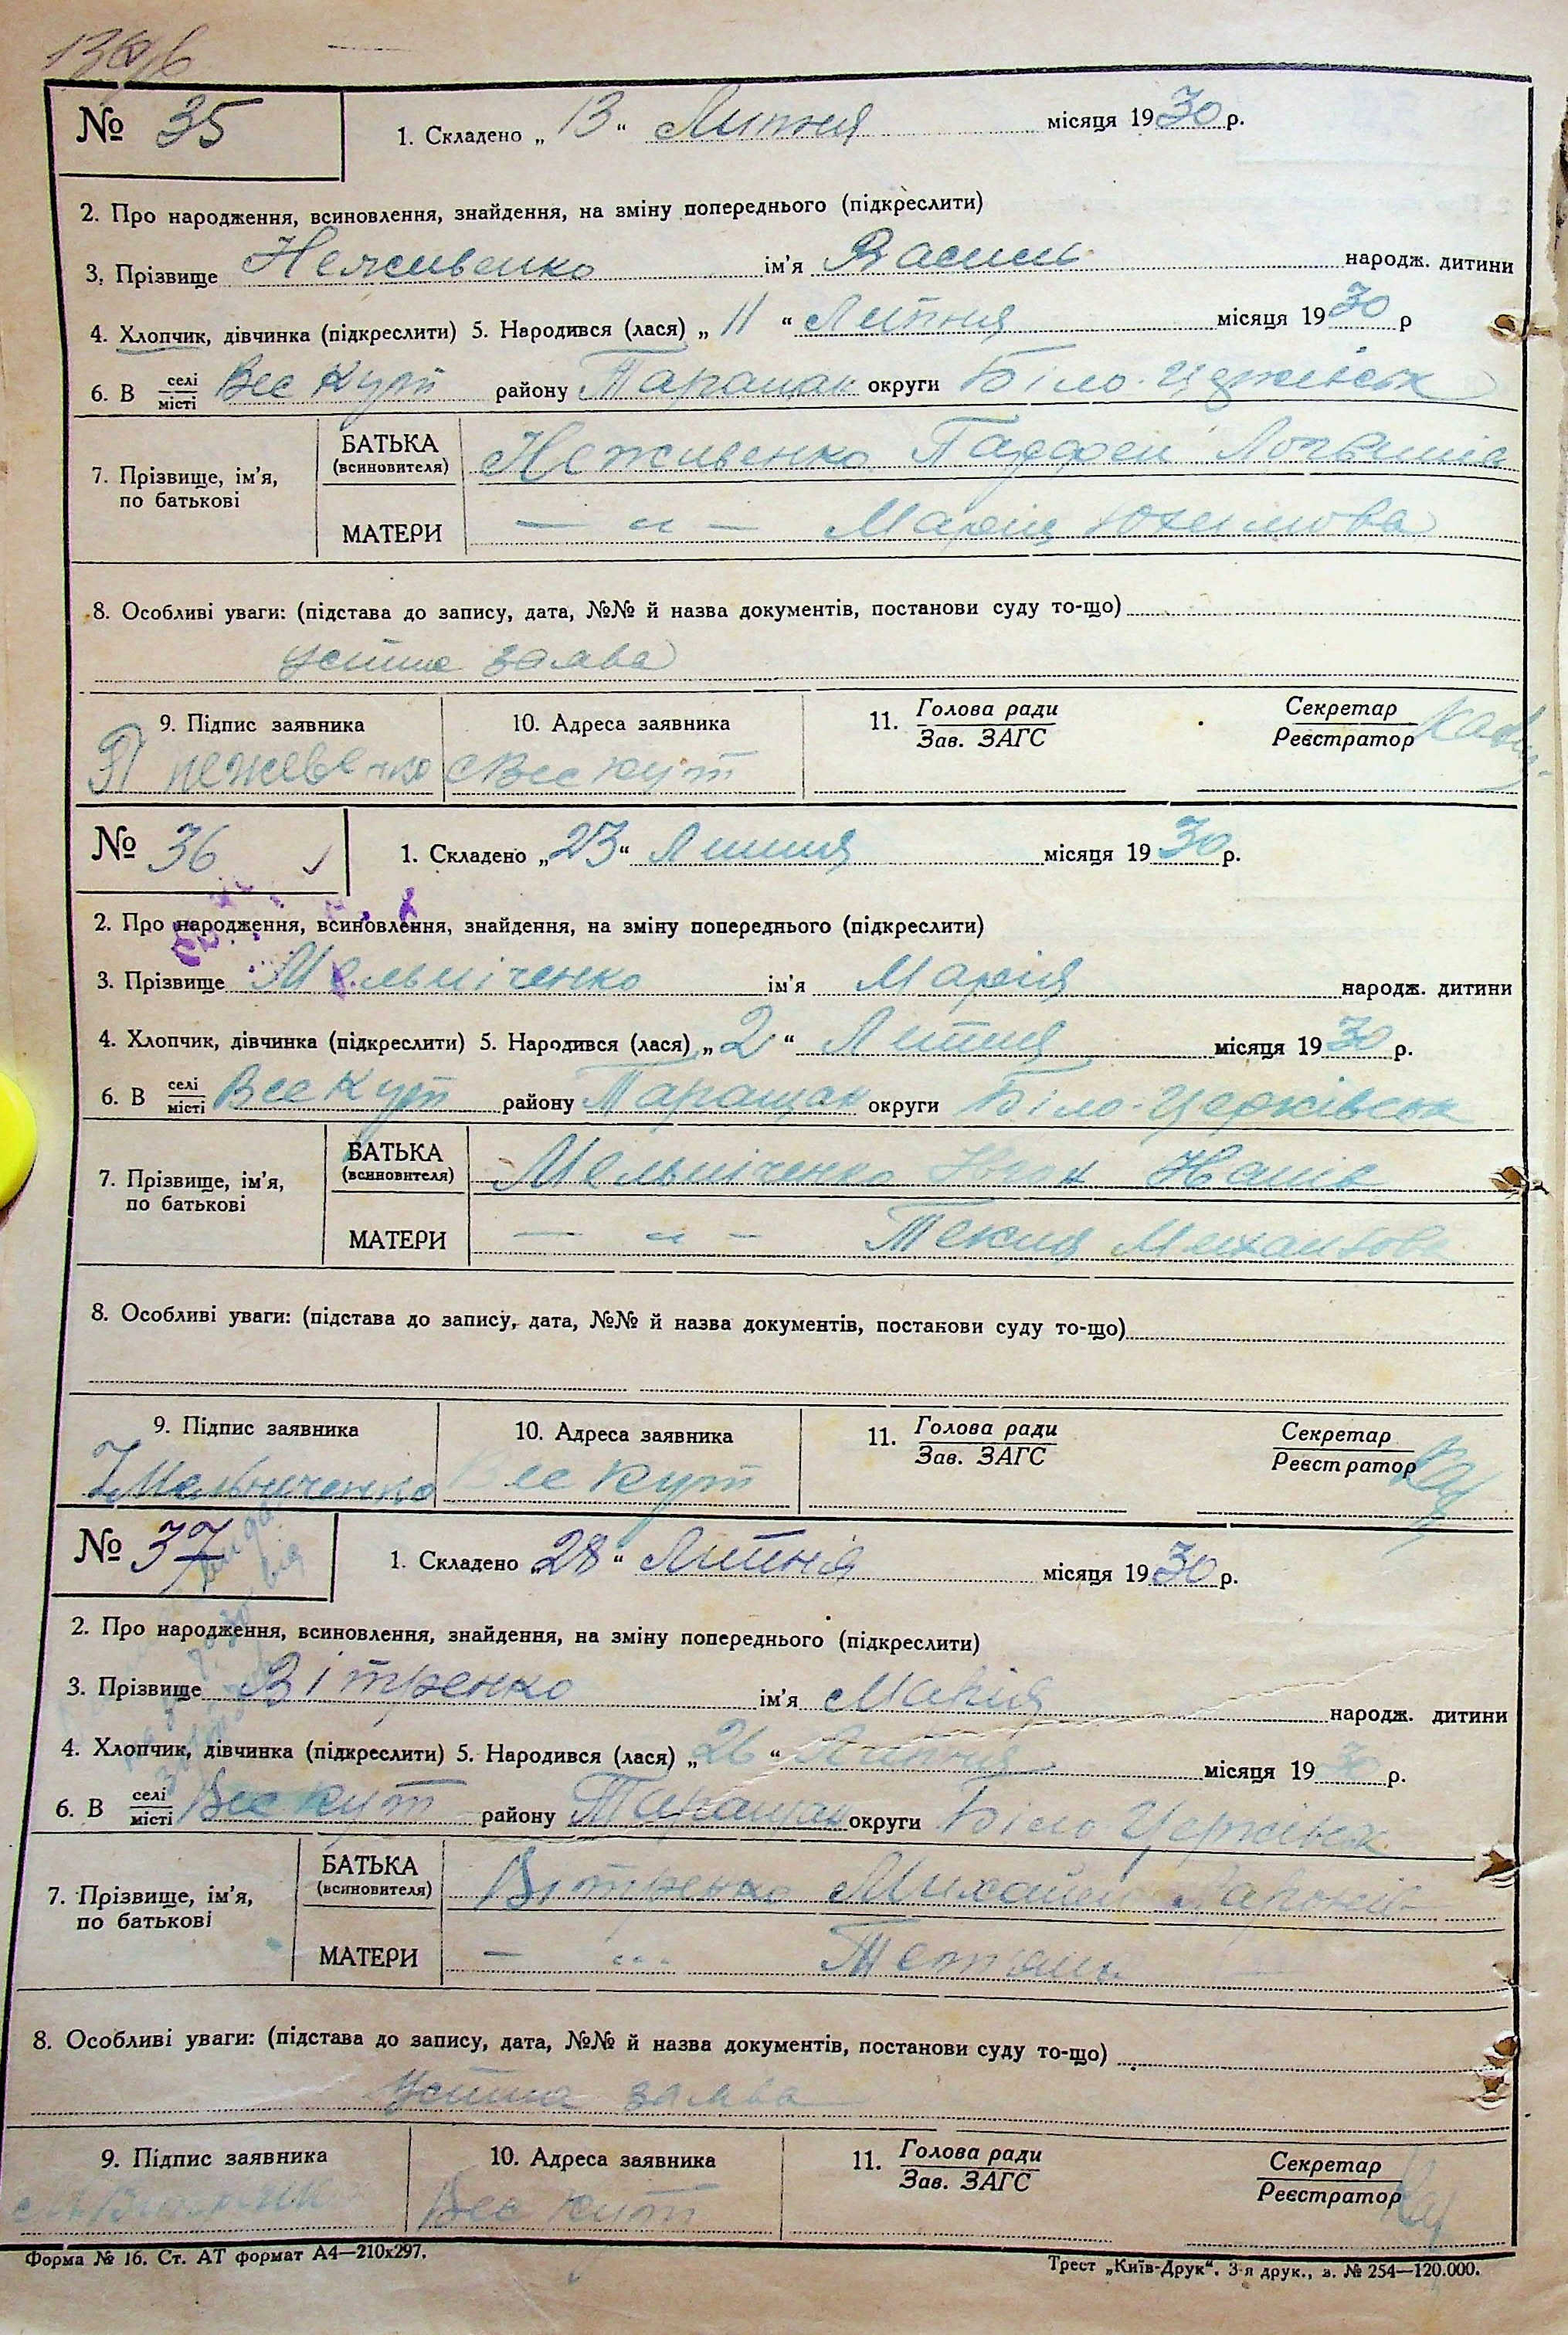 № 35
1. Складено „13“ Липня місяця 1930 р.
2. Про народження, всиновлення, знайдення, на зміну попереднього (підкреслити)
3. Прізвище Неживенко ім'я Василь народж. дитини
4. Хлопчик, дівчинка (підкреслити) 5. Народився (лася) „11“ Липня місяця 1930 р
6. В селі місті Вес Кут району Таращан округи Біло-Церківськ
7. Прізвище, ім'я, по батькові
БАТЬКА (всиновителя) Неживенко
МАТЕРИ — „ — Марія Юхимова
8. Особливі уваги: (підстава до запису, дата, №№ й назва документів, постанови суду то-що)
устна заява
9. Підпис заявника 10. Адреса заявника 11. Голова ради Зав. ЗАГС Секретар Реєстратор
с Вес Кут
№ 36
1. Складено „23“ Липня місяця 1930 р.
2. Про народження, всиновлення, знайдення, на зміну попереднього (підкреслити)
3. Прізвище Мельніченко ім'я Марія народж. дитини
4. Хлопчик, дівчинка (підкреслити) 5. Народився (лася) „2“ Липня місяця 1930 р.
6. В селі місті Вес Кут району Таращан округи Біло-Церківськ
7. Прізвище, ім'я, по батькові
БАТЬКА (всиновителя) Мельніченко
МАТЕРИ — „ — Текля Михайлова
8. Особливі уваги: (підстава до запису, дата, №№ й назва документів, постанови суду то-що)
9. Підпис заявника 10. Адреса заявника 11. Голова ради Зав. ЗАГС Секретар Реєстратор
Мельниченко Вес Кут
№ 37
1. Складено „28“ Липнія місяця 1930 р.
2. Про народження, всиновлення, знайдення, на зміну попереднього (підкреслити)
3. Прізвище Вітренко ім'я Марія народж. дитини
4. Хлопчик, дівчинка (підкреслити) 5. Народився (лася) „26“ Липня місяця 1930 р.
6. В селі місті Вес Кут району Таращан округи Біло Церківськ
7. Прізвище, ім'я, по батькові
БАТЬКА (всиновителя) Вітренко Михайло
МАТЕРИ — „ — Тетяна
8. Особливі уваги: (підстава до запису, дата, №№ й назва документів, постанови суду то-що)
устна заява
9. Підпис заявника 10. Адреса заявника 11. Голова ради Зав. ЗАГС Секретар Реєстратор
Вес Кут
Форма № 16. Ст. АТ формат А4—210х297. Трест „Київ-Друк“. 3-я друк., з. № 254—120.000.